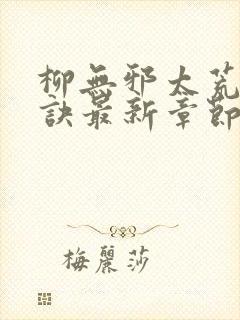 柳無邪太荒
訣最新章節
梅麗莎